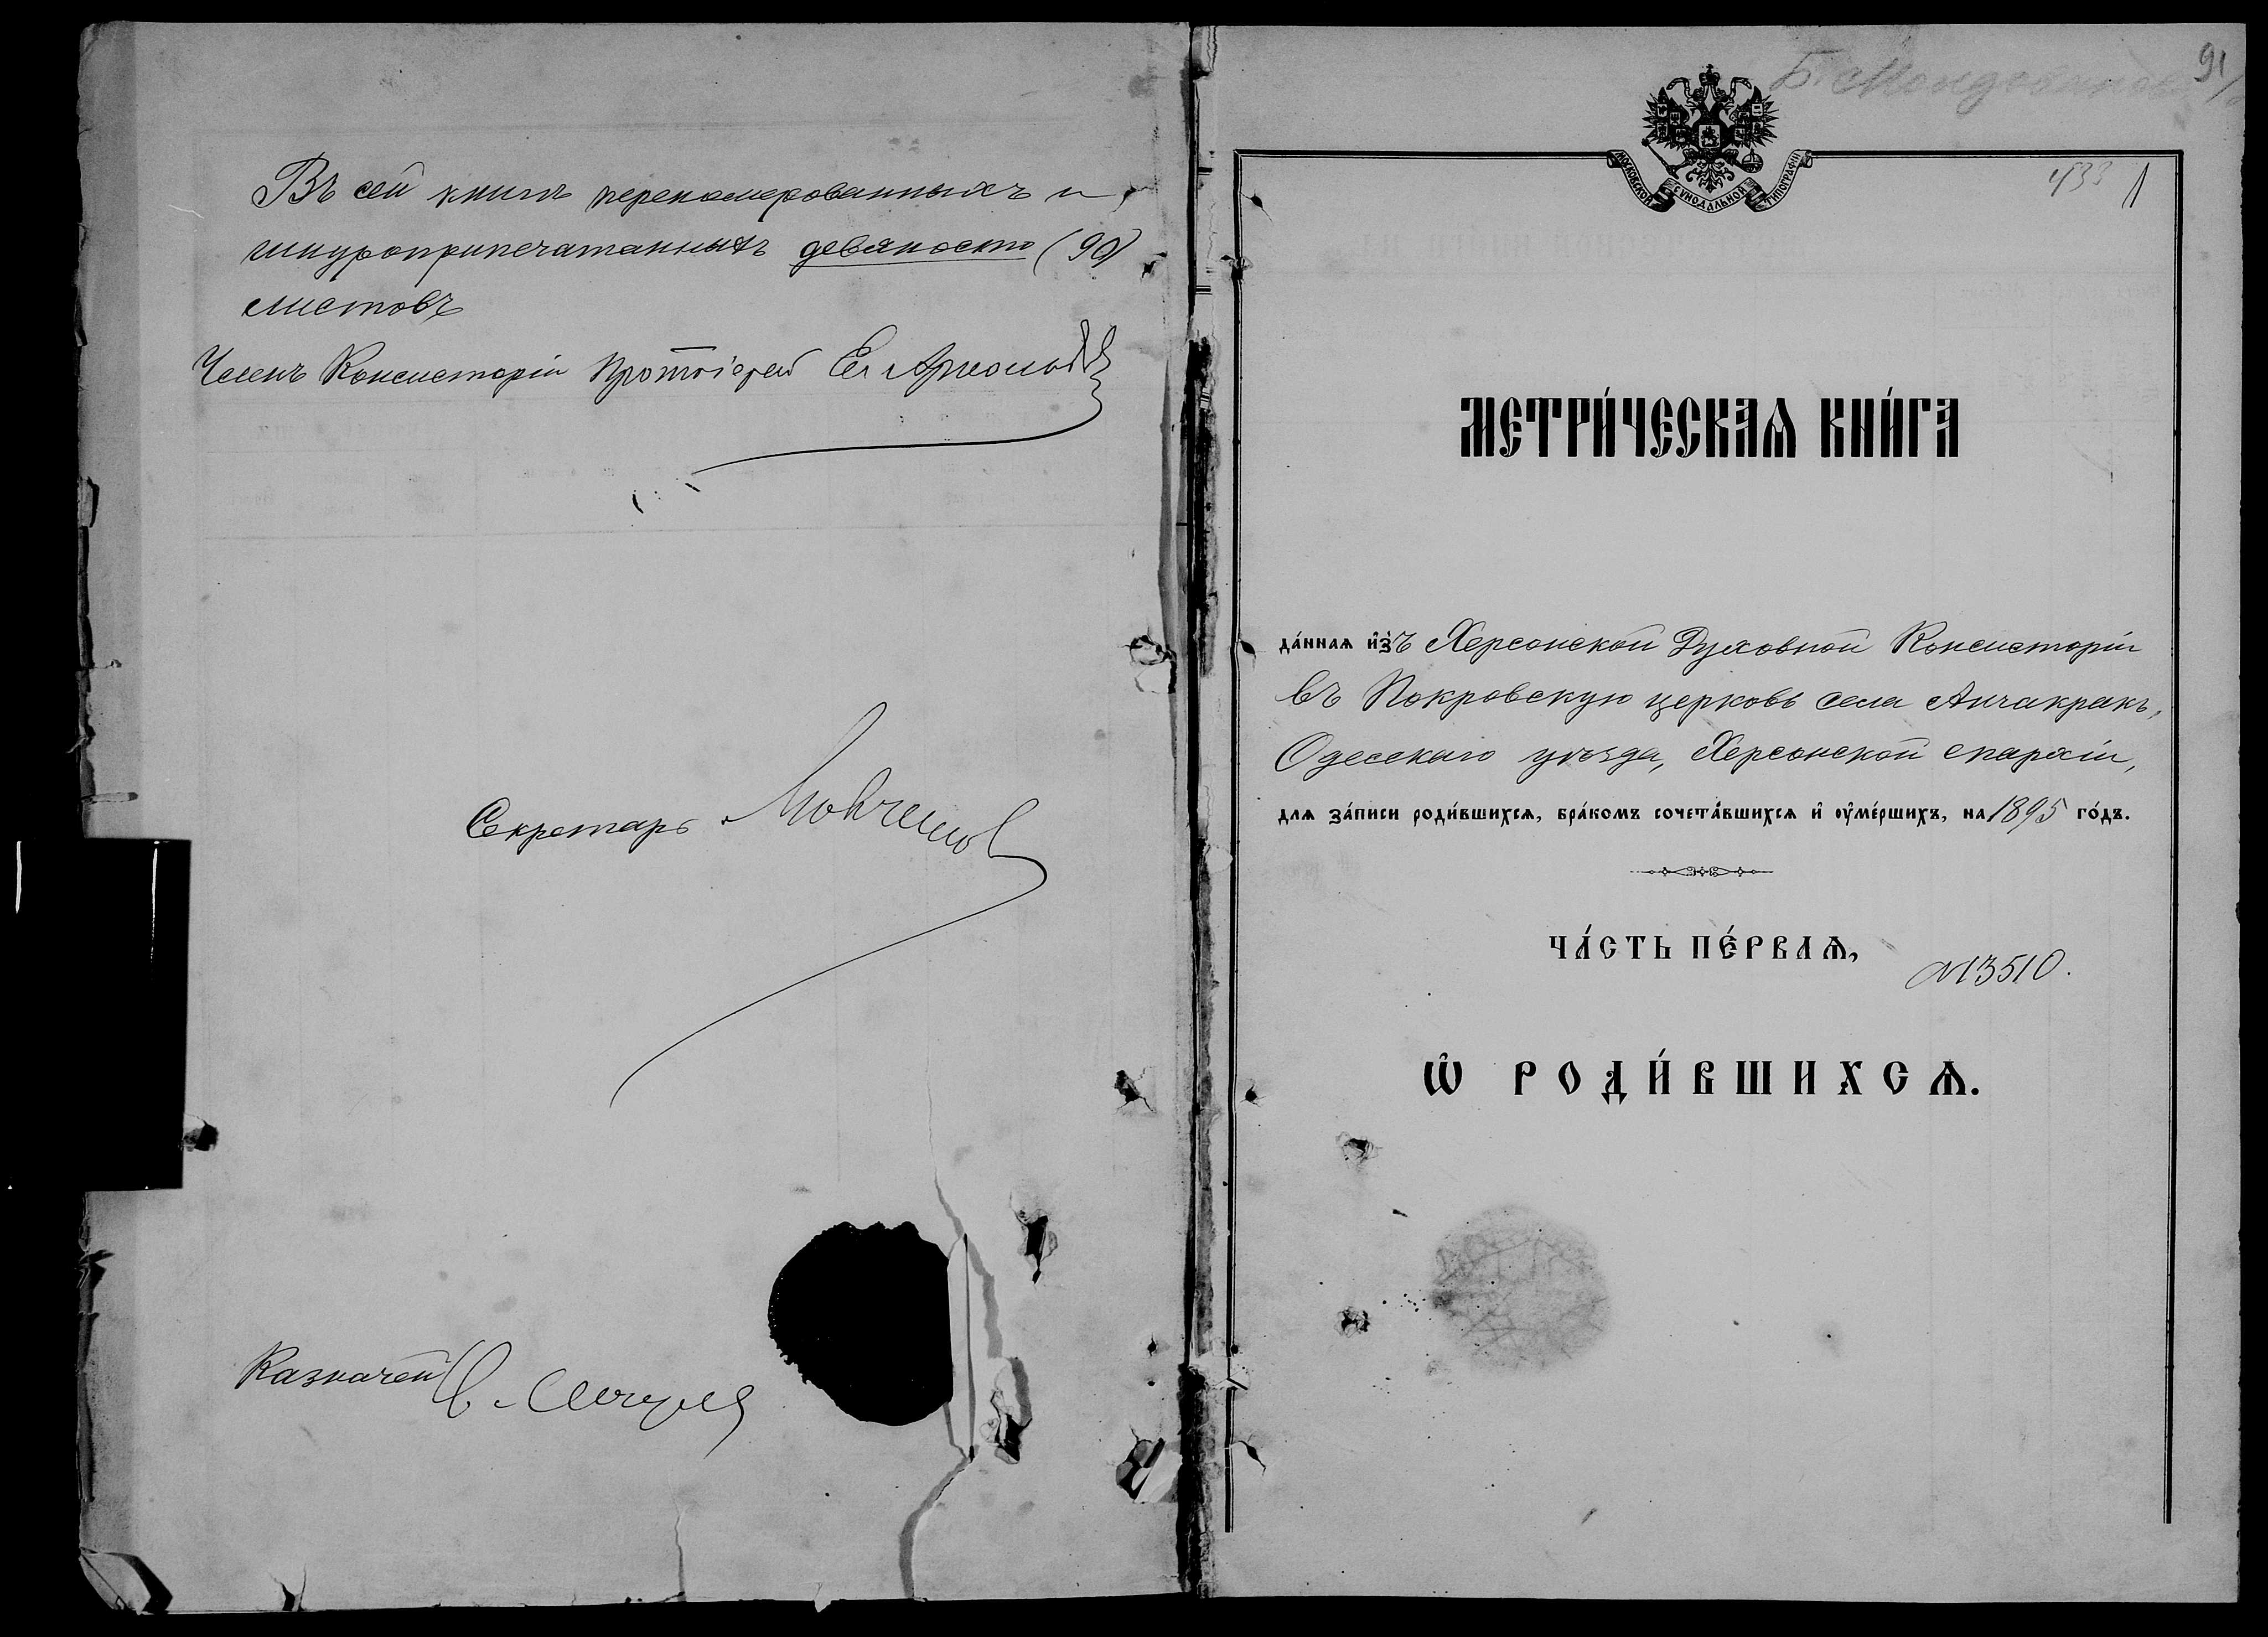 Въ сей книгѣ переномерованныхъ и
шнуроприпечатанныхъ девяносто (90)
листовъ
Членъ Консисторіи Протоіерей
Секретарь
Казначей
91
433
1
МОСКОВСКОЙ СѴНОДАЛЬНОЙ ТИПОГРАФІИ
МЕТРИ́ЧЕСКАѦ КНИ́ГА
да́ннаѧ и҆зъ Херсонской Духовной Консисторіи
въ Покровскую церковь села Анчакракъ,
Одесскаго уѣзда, Херсонской епархіи,
для за́писи роди́вшихсѧ, бра́комъ сочета́вшихсѧ и҆ ᲂу҆ме́ршихъ, на 1895 го́дъ.
ЧА́СТЬ ПЕ́РВАѦ,
№13510.
Ѡ҆ РОДИ́ВШИХСѦ.